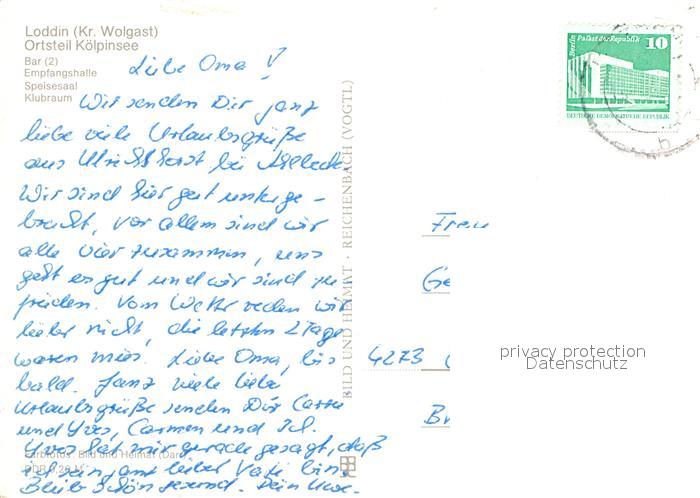 Loddin (Kr. Wolgast)
Ortsteil Kölpinsee
Bar (2)
Empfangshalle
Speisesaal
Klubraum
Berlin Palast der Republik 10
DEUTSCHE DEMOKRATISCHE REPUBLIK
Liebe Oma!
Wir senden Dir ganz
liebe viele Urlaubsgrüße
aus Ulrichshorst bei Ahlbeck.
Wir sind hier gut unterge-
bracht, vor allem sind wir
alle vier zusammen, uns
geht es gut und wir sind zu
frieden. Vom Wetter reden wir
lieber nicht, die letzten 2 Tage
waren mies. Liebe Oma, bis
bald. Ganz viele liebe
Urlaubsgrüße senden Dir
und Yves, Carmen und
Yves hat mir gerade gesagt, daß
ich sein ganz lieber Vati bin.
Bleib schön gesund. Dein Uwe.
BILD UND HEIMAT · REICHENBACH (VOGTL)
Frau
Ge
4273
Br
privacy protection
Datenschutz
Farbfotos: Bild und Heimat